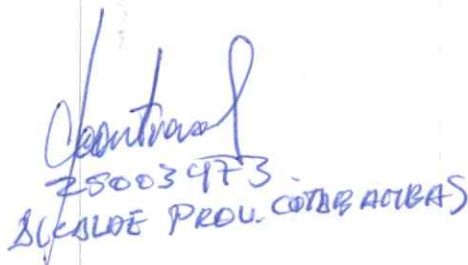 25003473
ALCALDE PROV. COTABAMBAS